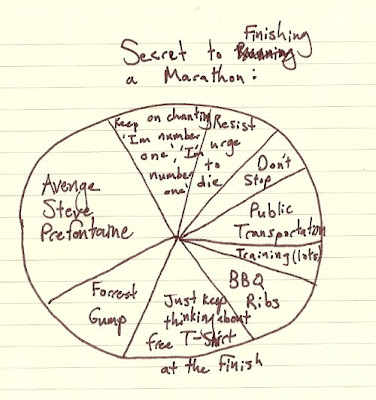 Finishing
Secret to
a Marathon:
Keep on chanting
'Im number
one', 'I'm
number
one'
Resist
urge
to
die
Don't
Stop
Public
Transportation
Training (lots)
BBQ
Ribs
Just keep
thinking about
free T-Shirt
at the Finish
Forrest
Gump
Avenge
Steve
Prefontaine